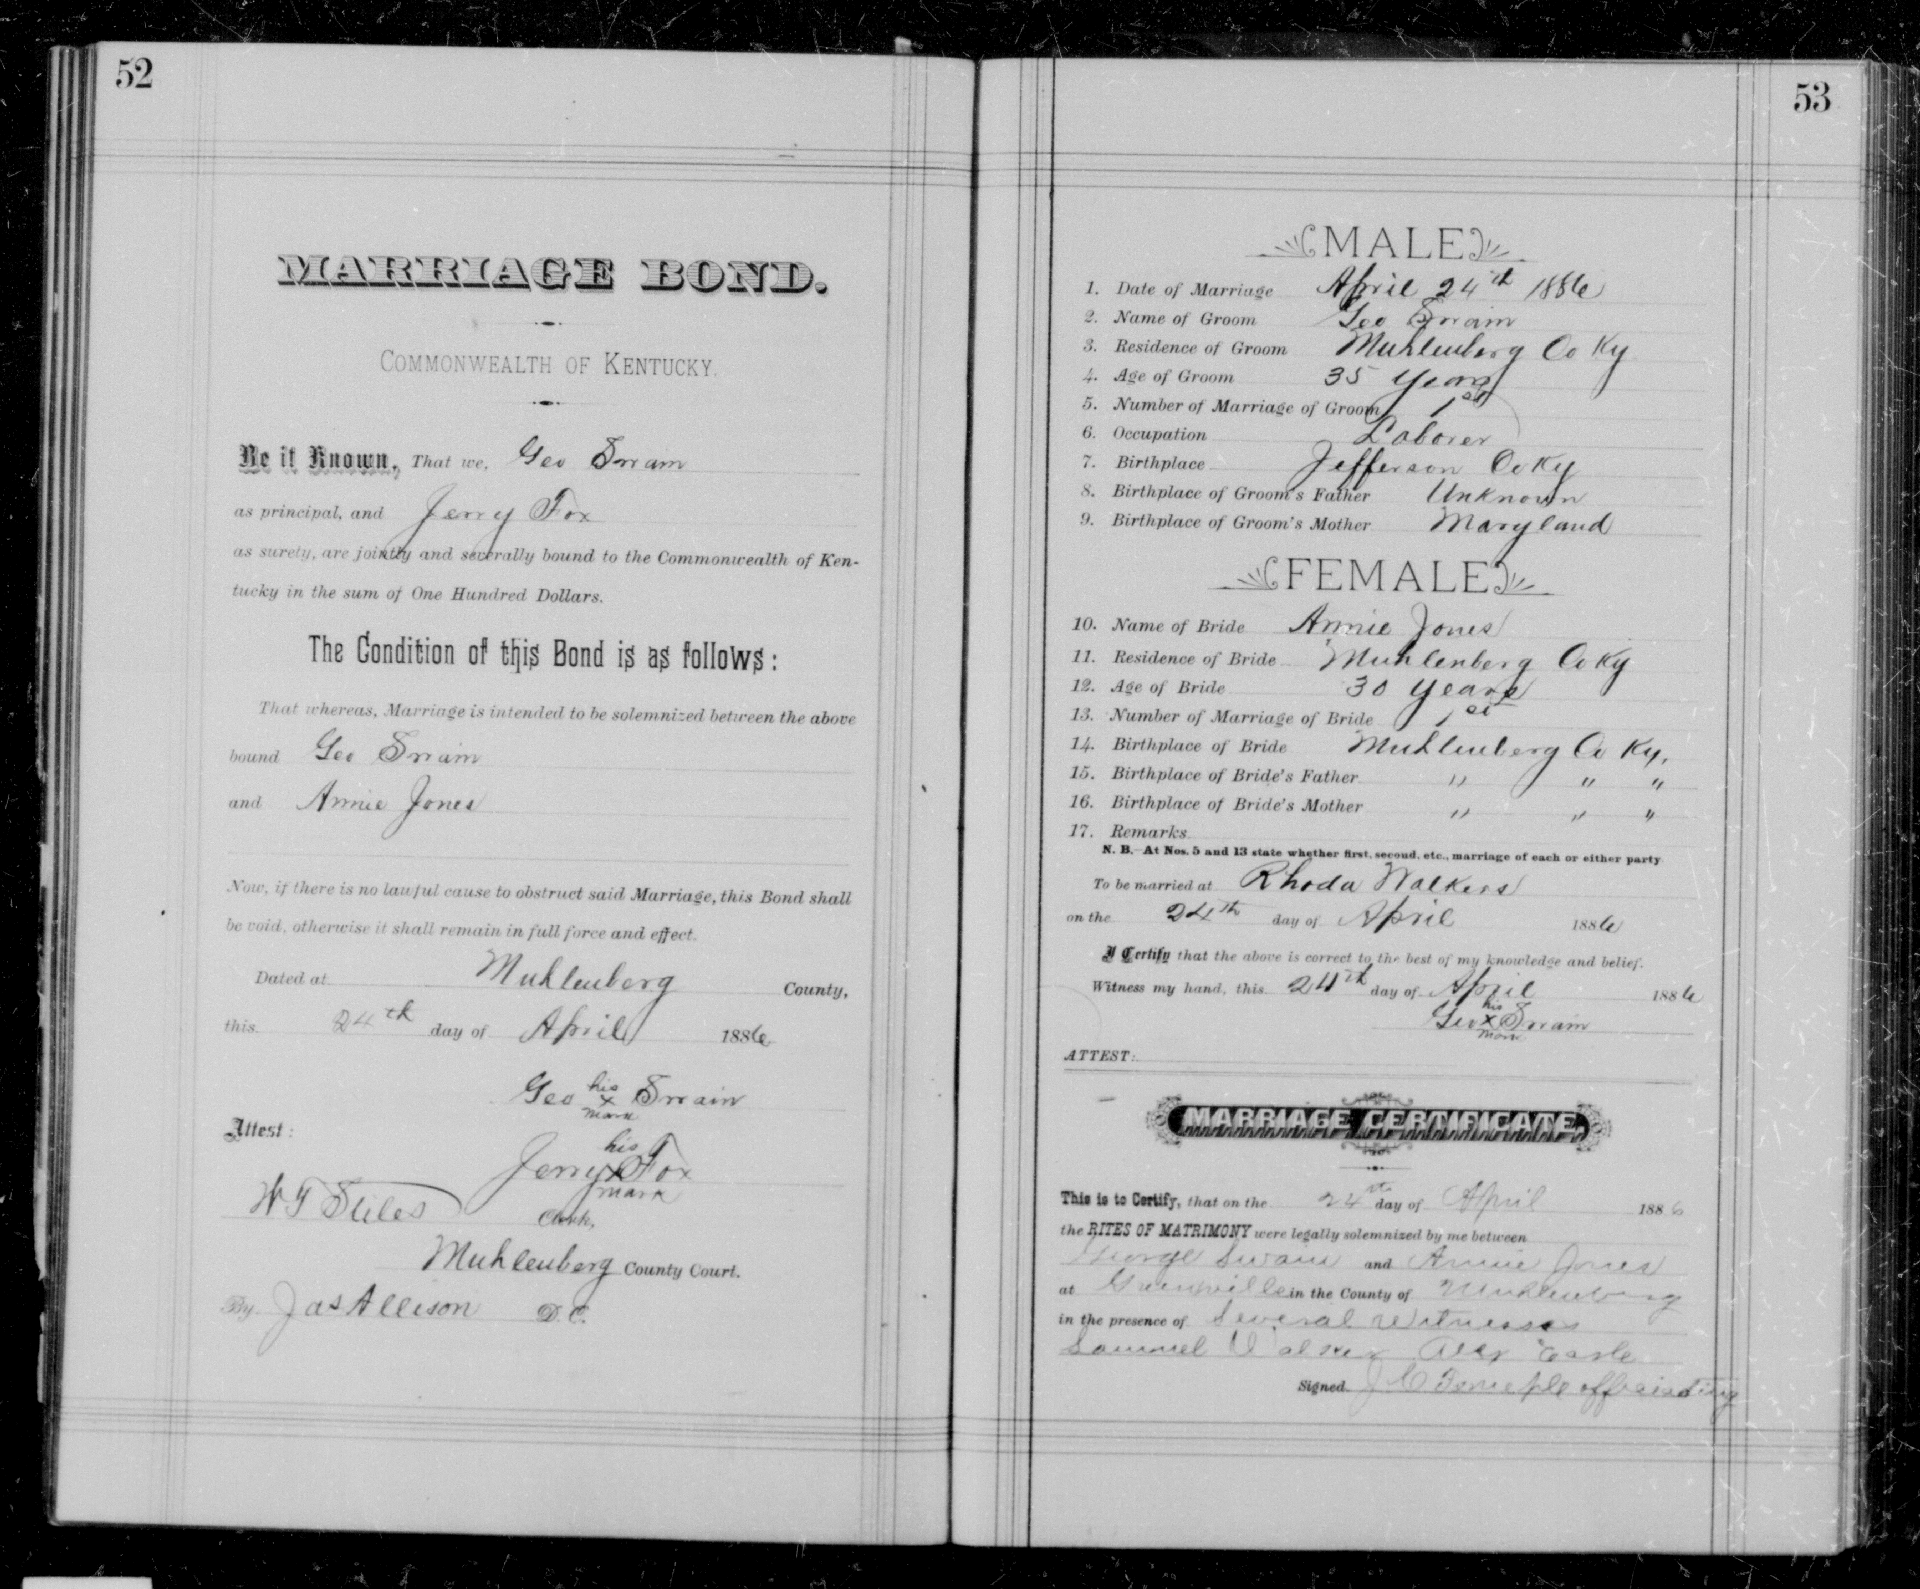 52
MARRIAGE BOND.
COMMONWEALTH OF KENTUCKY.
Be it Known, That we, Geo Swain
as principal, and Jerry Fox
as surety, are jointly and severally bound to the Commonwealth of Ken-
tucky in the sum of One Hundred Dollars.
The Condition of this Bond is as follows:
That whereas, Marriage is intended to be solemnized between the above
bound Geo Swain
and Annie Jones
Now, if there is no lawful cause to obstruct said Marriage, this Bond shall
be void, otherwise it shall remain in full force and effect.
Dated at Muhlenberg County,
this 24th day of April 1886
Geo his x mark Swain
Attest:
Jerry his x mark Fox
W T Stiles Clerk,
Muhlenberg County Court.
By Jas Allison D.C.
53
MALE
1. Date of Marriage April 24th 1886
2. Name of Groom Geo Swain
3. Residence of Groom Muhlenberg Co Ky
4. Age of Groom 35 Years
5. Number of Marriage of Groom 1st
6. Occupation Laborer
7. Birthplace Jefferson Co Ky
8. Birthplace of Groom's Father Unknown
9. Birthplace of Groom's Mother Maryland
FEMALE
10. Name of Bride Annie Jones
11. Residence of Bride Muhlenberg Co Ky
12. Age of Bride 30 Years
13. Number of Marriage of Bride 1st
14. Birthplace of Bride Muhlenberg Co Ky.
15. Birthplace of Bride's Father " " "
16. Birthplace of Bride's Mother " " "
17. Remarks
N. B.—At Nos. 5 and 13 state whether first, second, etc., marriage of each or either party
To be married at Rhoda Walkers
on the 24th day of April 1886
I Certify that the above is correct to the best of my knowledge and belief.
Witness my hand, this 24th day of April 1886
Geo his x mark Swain
ATTEST:
MARRIAGE CERTIFICATE.
This is to Certify, that on the 24th day of April 1886
the RITES OF MATRIMONY were legally solemnized by me between
George Swain and Annie Jones
at Greenville in the County of Muhlenberg
in the presence of Several Witnesses
Samuel Walker Alex
Signed J C officiating